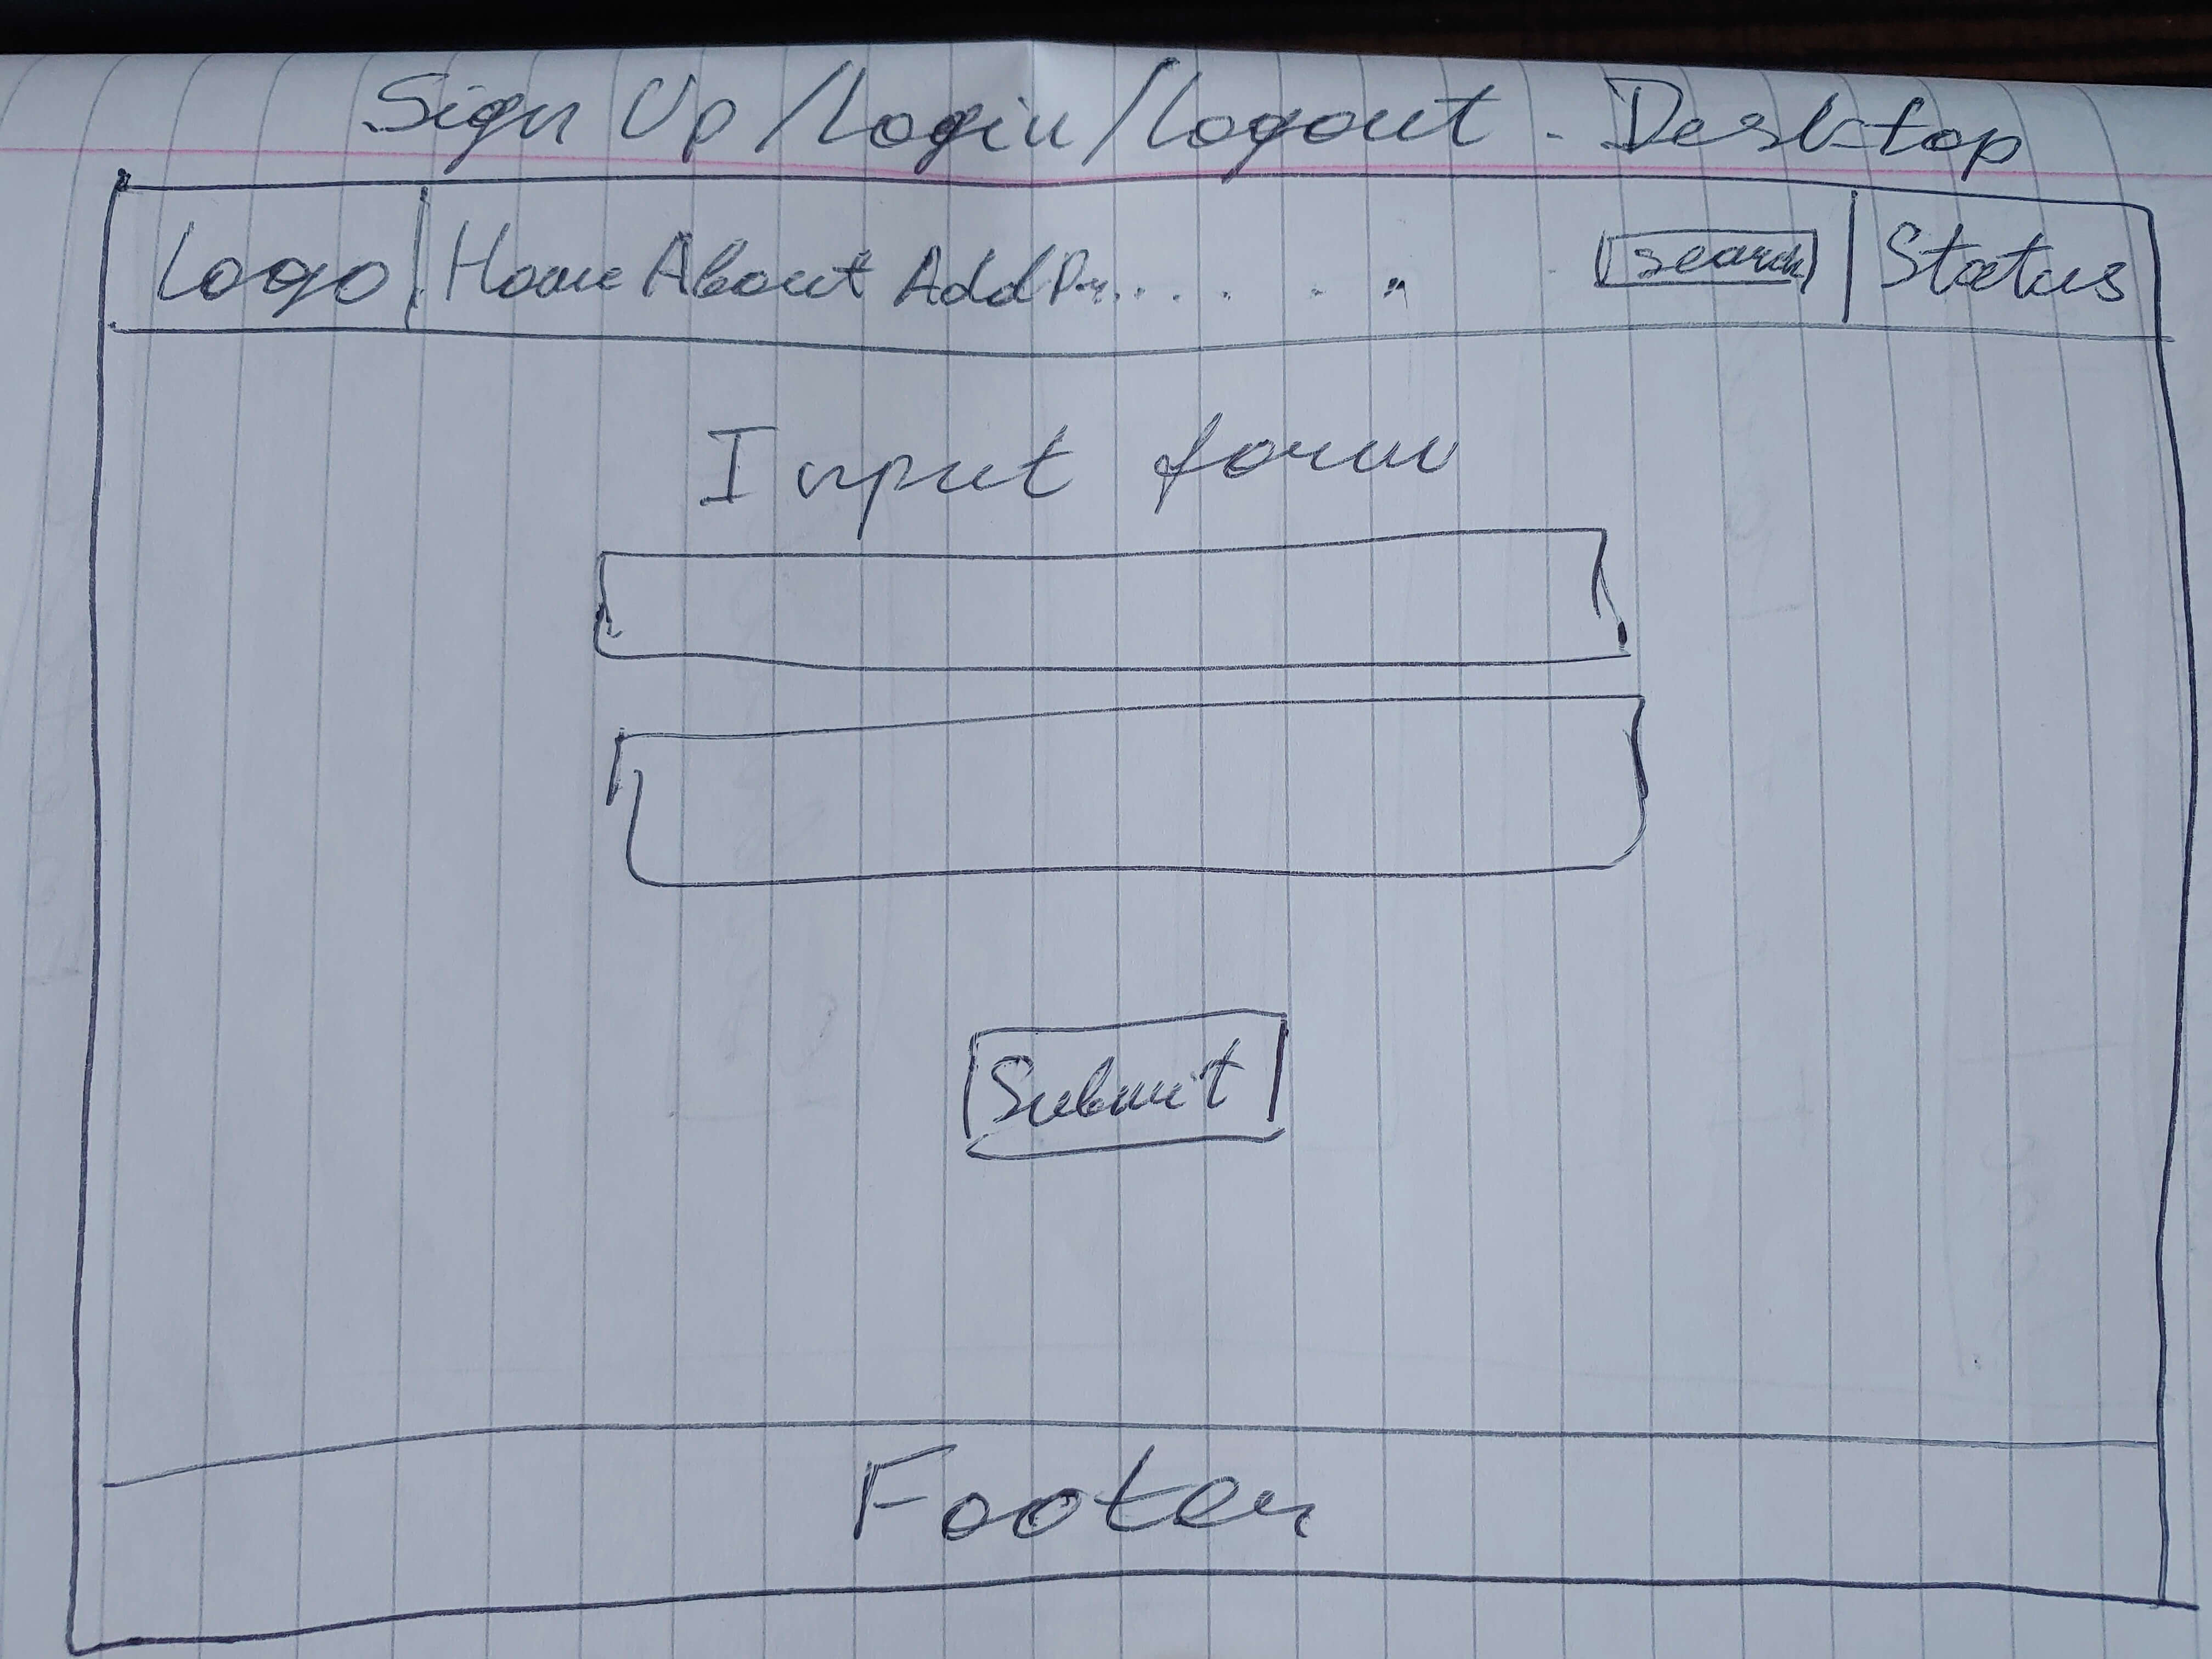 Sign Up/Login/Logout - Desktop
Logo Home About Add P....... search Status
Input form
Submit
Footer